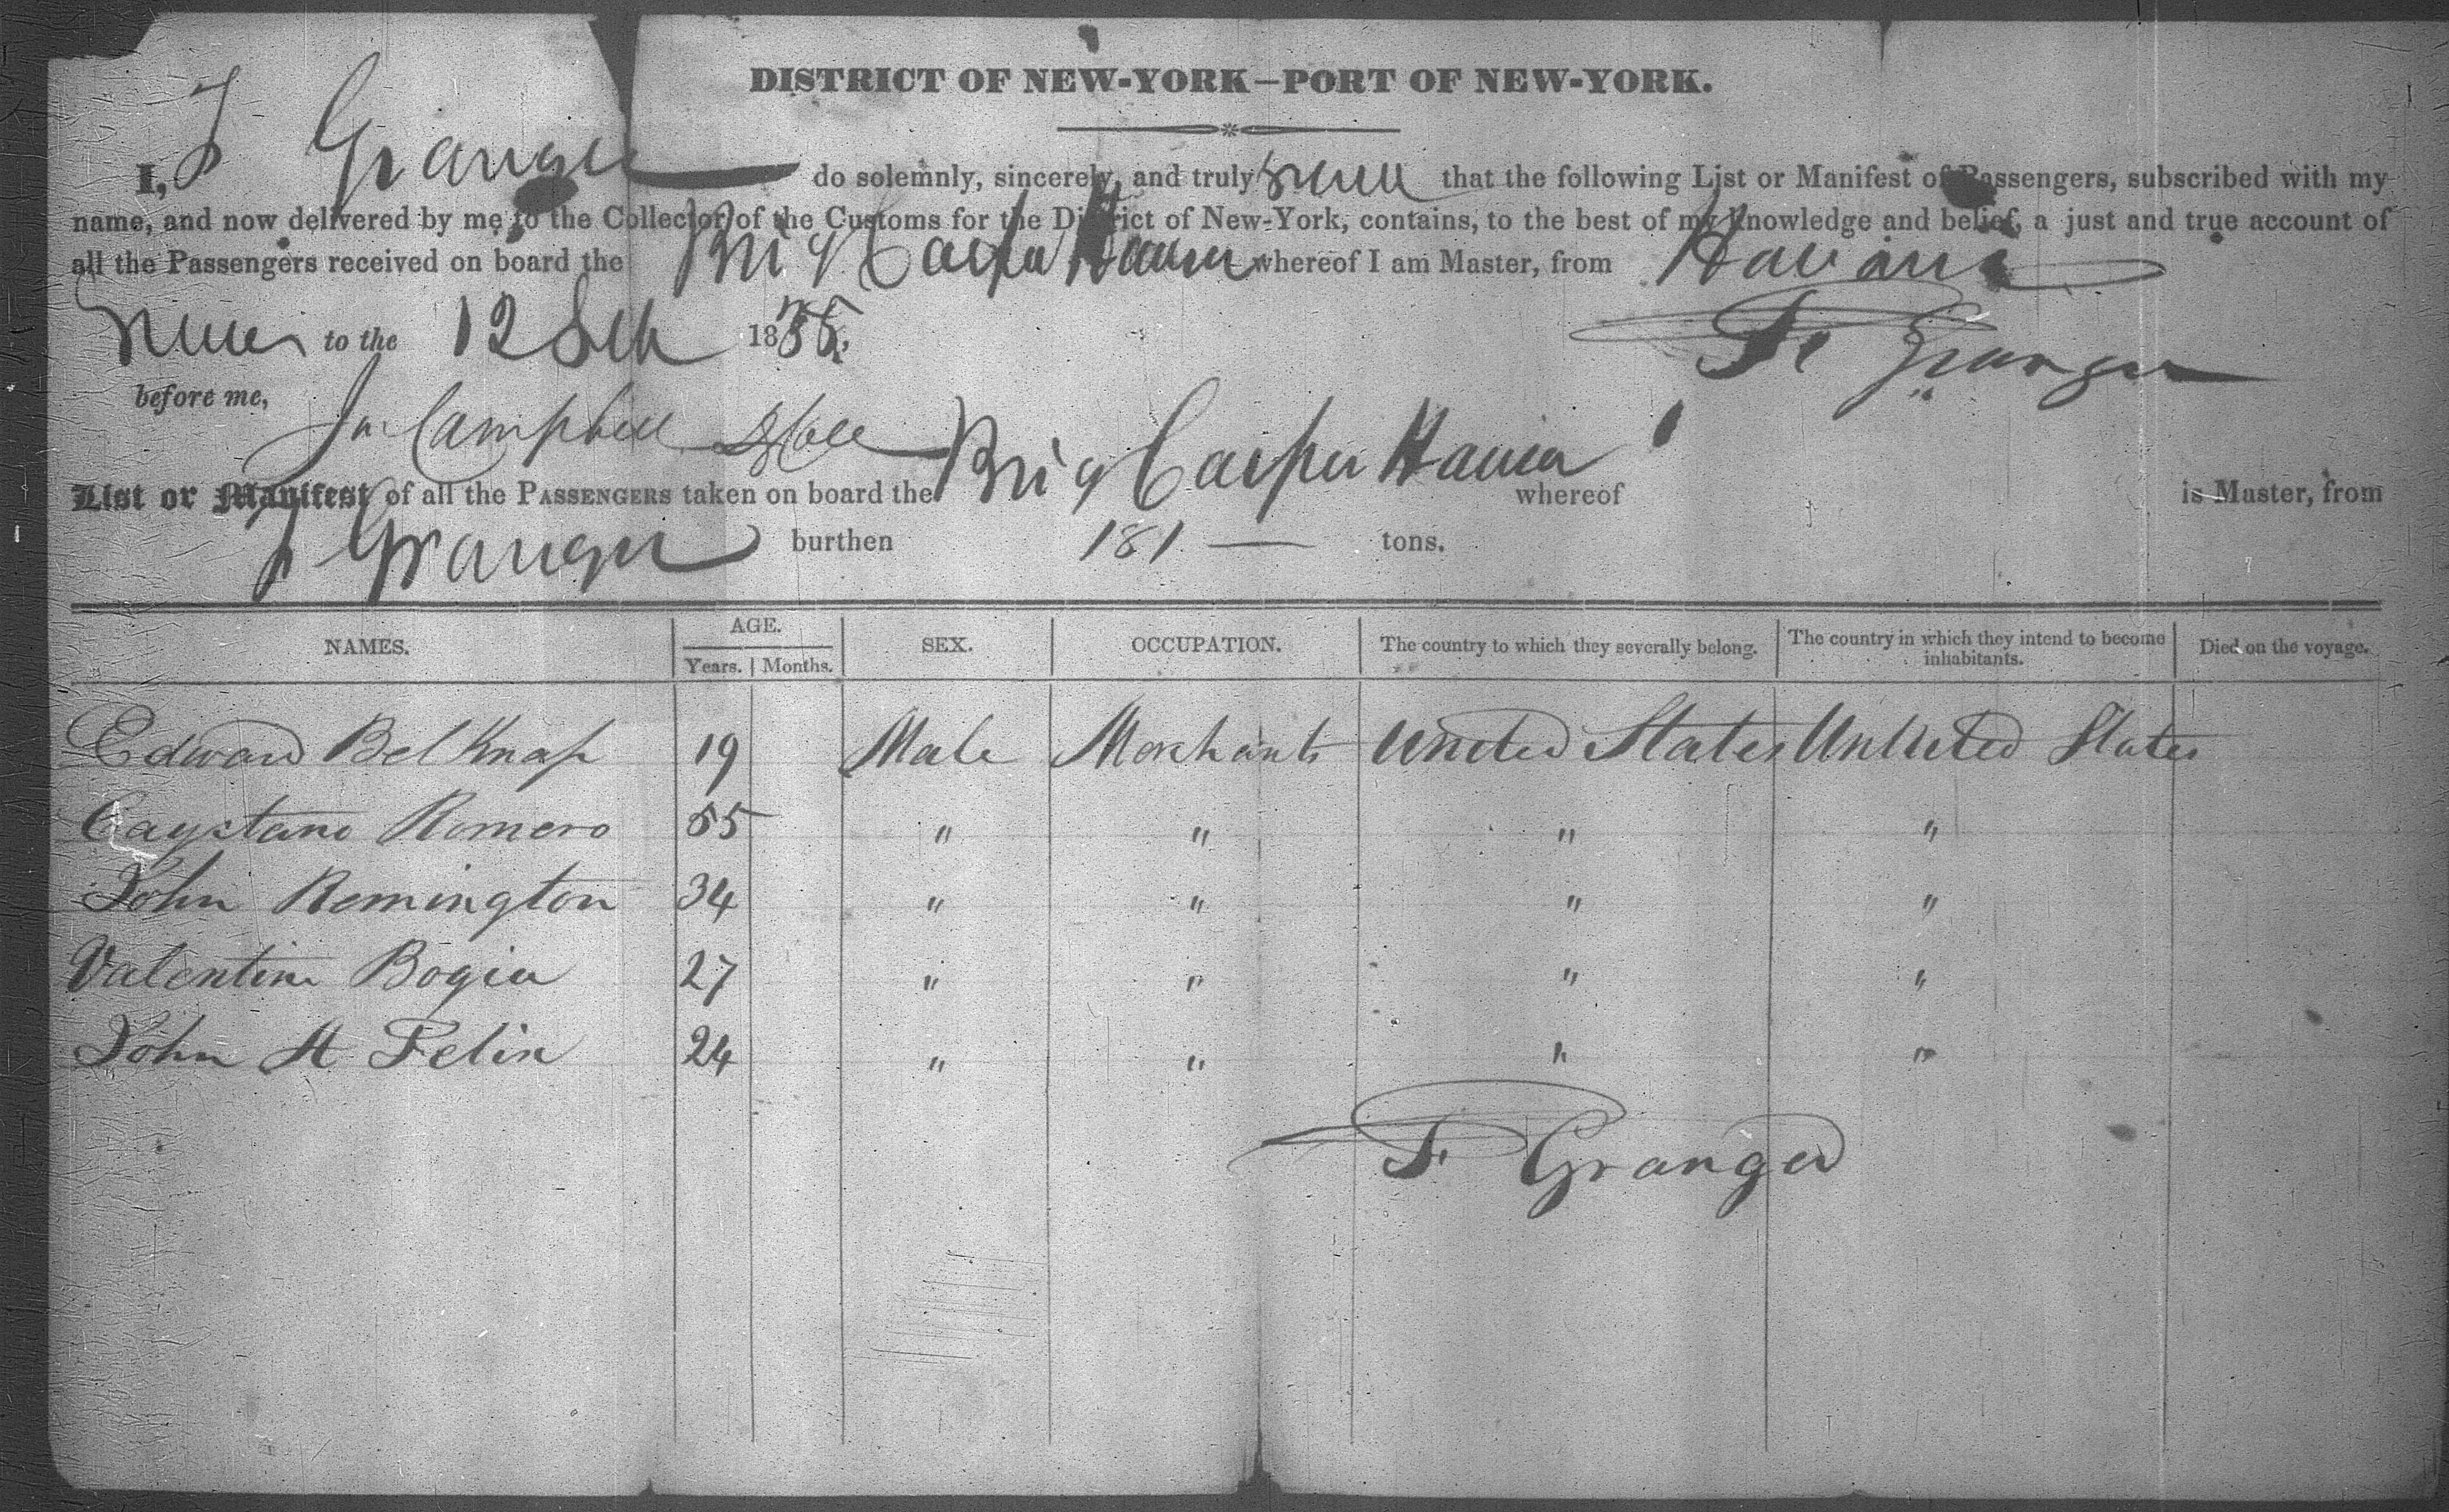 DISTRICT OF NEW-YORK—PORT OF NEW-YORK.
I, F Granger do solemnly, sincerely, and truly swear that the following List or Manifest of Passengers, subscribed with my
name, and now delivered by me to the Collector of the Customs for the District of New-York, contains, to the best of my knowledge and belief, a just and true account of
all the Passengers received on board the Brig Casper Hauser whereof I am Master, from Havana
to the 12 1835. F Granger
before me,
Campbell
List or Manifest of all the PASSENGERS taken on board the Brig Casper Hauser whereof is Master, from
F Granger burthen 181 — tons.
NAMES. AGE. Years. Months. SEX. OCCUPATION. The country to which they severally belong. The country in which they intend to become inhabitants. Died on the voyage.
Edward Belknap 19 Male Merchants United States Unlited States
Cayetano Romero 55 " " " "
John Remington 34 " " " "
Valentine Bogia 27 " " " "
John A Felix 24 " " " "
F. Granger